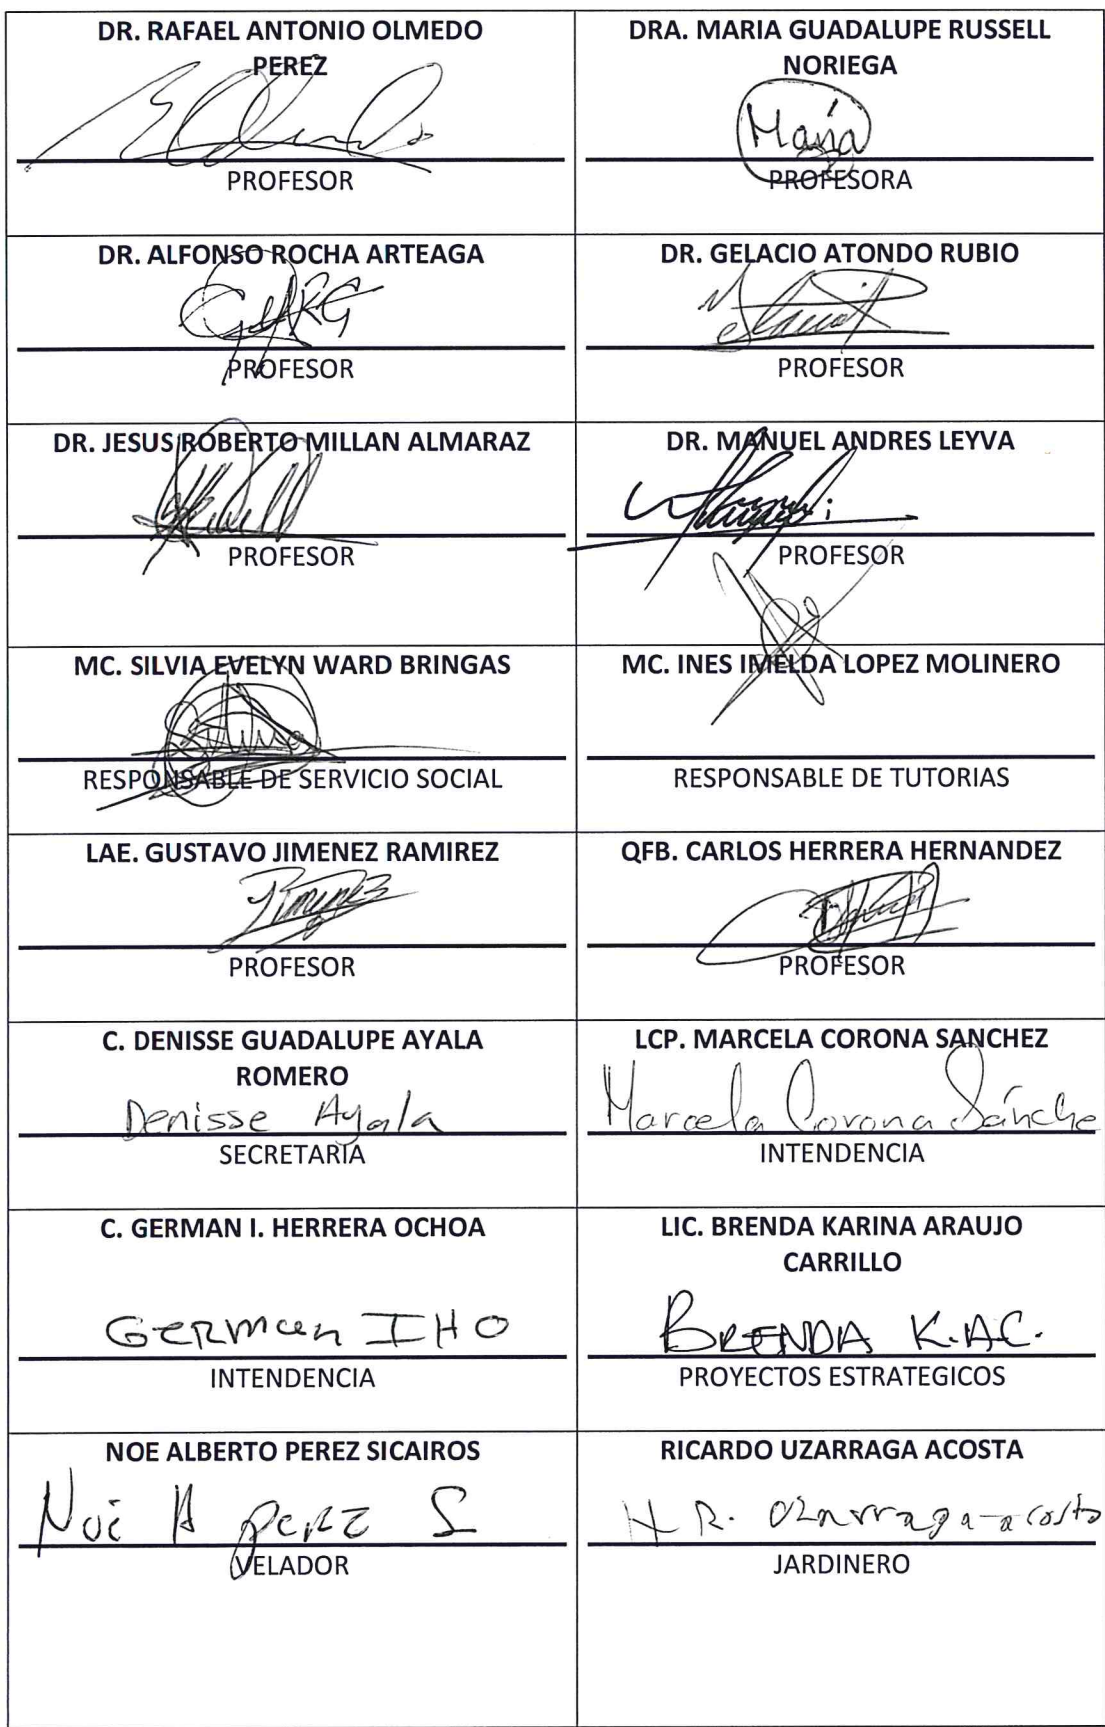 DR. RAFAEL ANTONIO OLMEDO
PEREZ
PROFESOR
DRA. MARIA GUADALUPE RUSSELL
NORIEGA
María
PROFESORA
DR. ALFONSO ROCHA ARTEAGA
PROFESOR
DR. GELACIO ATONDO RUBIO
PROFESOR
DR. JESUS ROBERTO MILLAN ALMARAZ
PROFESOR
DR. MANUEL ANDRES LEYVA
PROFESOR
MC. SILVIA EVELYN WARD BRINGAS
RESPONSABLE DE SERVICIO SOCIAL
MC. INES IMELDA LOPEZ MOLINERO
RESPONSABLE DE TUTORIAS
LAE. GUSTAVO JIMENEZ RAMIREZ
PROFESOR
QFB. CARLOS HERRERA HERNANDEZ
PROFESOR
C. DENISSE GUADALUPE AYALA
ROMERO
Denisse Ayala
SECRETARIA
LCP. MARCELA CORONA SANCHEZ
Marcela Corona Sánche
INTENDENCIA
C. GERMAN I. HERRERA OCHOA
German IHO
INTENDENCIA
LIC. BRENDA KARINA ARAUJO
CARRILLO
BRENDA K.A.C.
PROYECTOS ESTRATEGICOS
NOE ALBERTO PEREZ SICAIROS
Noé A perez S
VELADOR
RICARDO UZARRAGA ACOSTA
R. Uzarraga acosta
JARDINERO